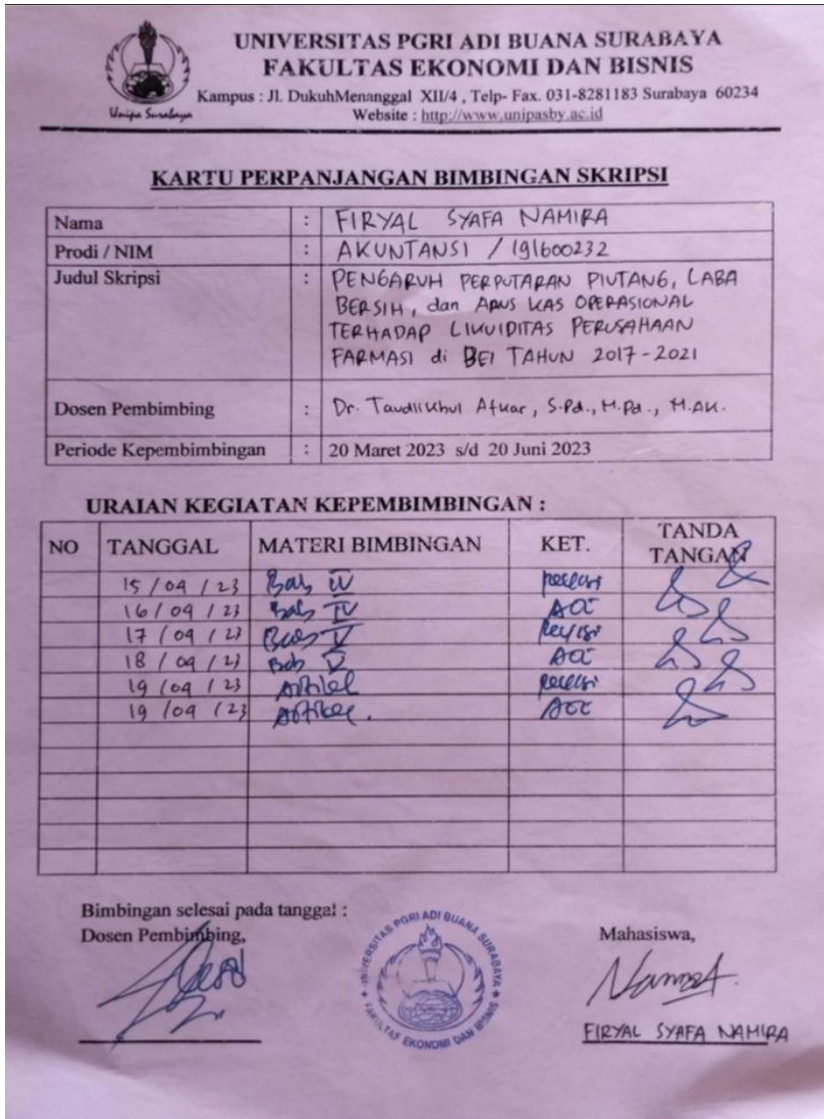 UNIVERSITAS PGRI ADI BUANA SURABAYA
FAKULTAS EKONOMI DAN BISNIS
Kampus : Jl. DukuhMenanggal XII/4 , Telp- Fax. 031-8281183 Surabaya 60234
Website : http://www.unipasby.ac.id
Unipa Surabaya
KARTU PERPANJANGAN BIMBINGAN SKRIPSI
Nama : FIRYAL SYAFA NAMIRA
Prodi / NIM : AKUNTANSI / 191600232
Judul Skripsi : PENGARUH PERPUTARAN PIUTANG, LABA
BERSIH, dan ARUS KAS OPERASIONAL
TERHADAP LIKUIDITAS PERUSAHAAN
FARMASI di BEI TAHUN 2017-2021
Dosen Pembimbing : Dr. Afkar, S.Pd., M.Pd., M.AK.
Periode Kepembimbingan : 20 Maret 2023 s/d 20 Juni 2023
URAIAN KEGIATAN KEPEMBIMBINGAN :
NO TANGGAL MATERI BIMBINGAN KET. TANDA
TANGAN
15/04/23 Bab IV revisi
16/04/23 Bab IV ACC
17/04/23 Bab V revisi
18/04/23 Bab V ACC
19/04/23 Artikel revisi
19/04/23 Artikel. ACC
Bimbingan selesai pada tanggal :
Dosen Pembimbing, Mahasiswa,
UNIVERSITAS PGRI ADI BUANA SURABAYA
FAKULTAS EKONOMI DAN BISNIS
FIRYAL SYAFA NAMIRA